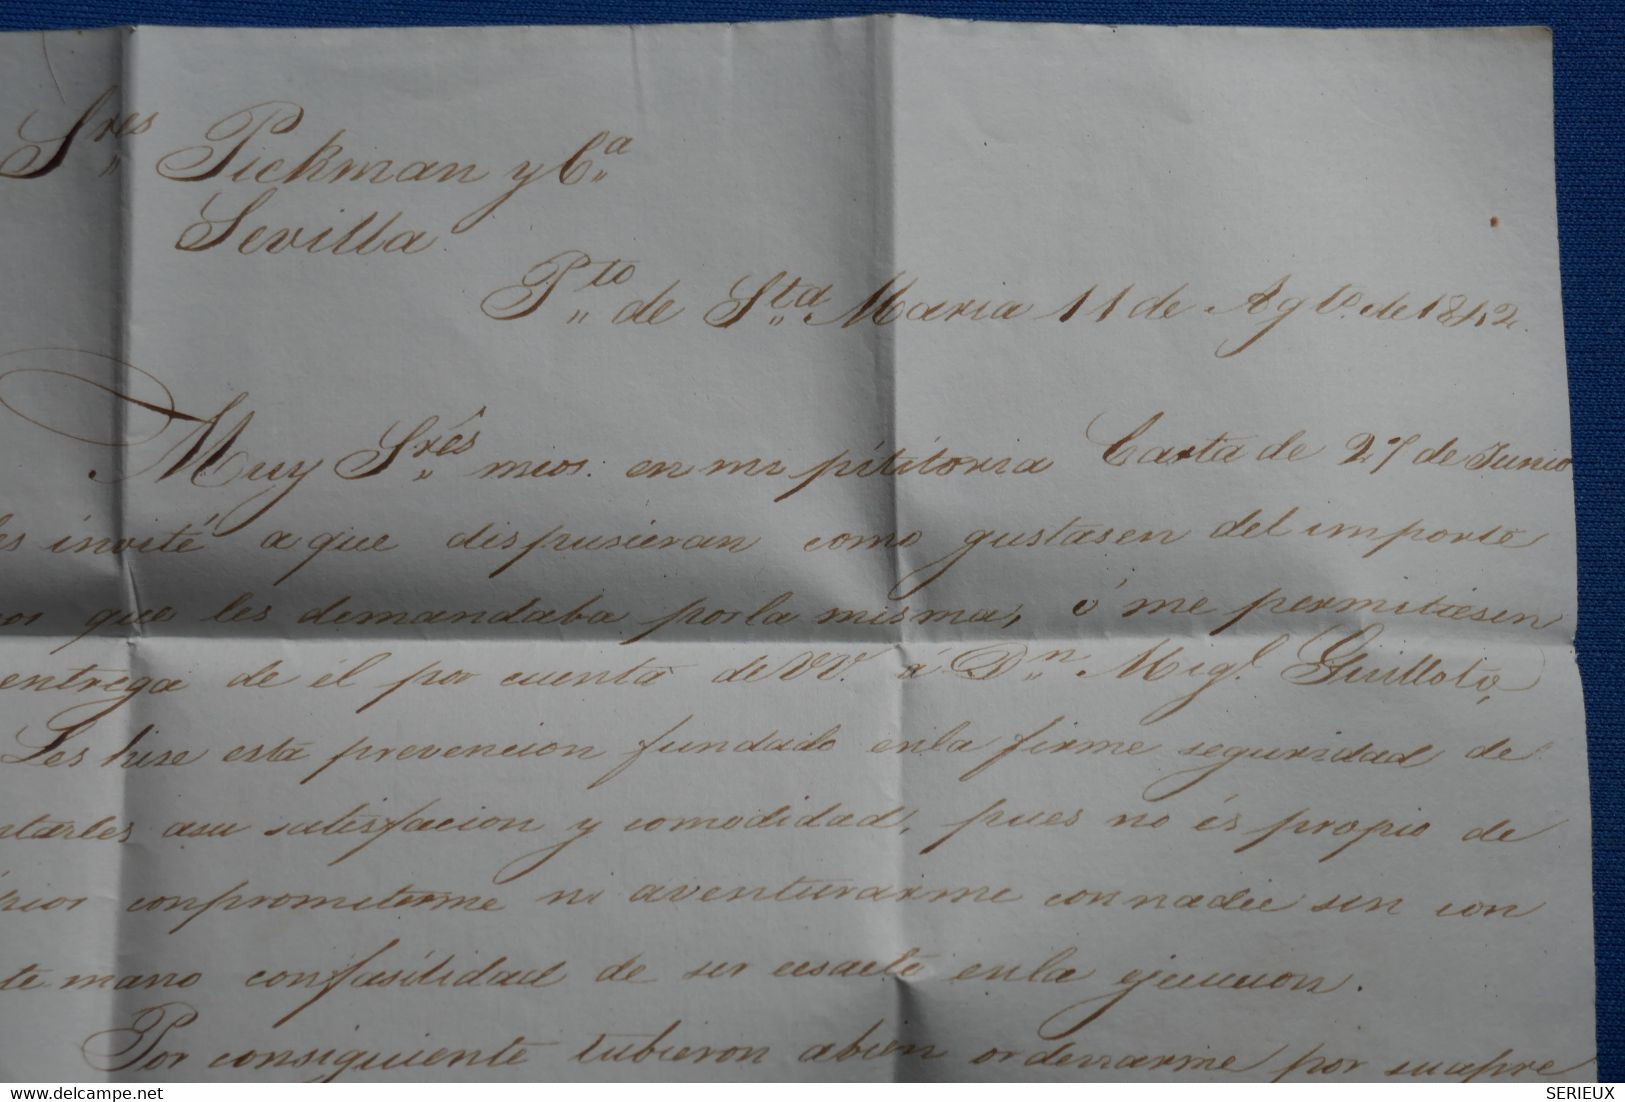 Sres Pickman y Ca
Sevilla
Pto de Sta Maria 11 de Agto de 1842
Muy Sres mios: en mi pititoria Carta de 27 de Junio
les invité a que dispusieran como gustasen del importe
que les demandaba porla misma, ó me permitiesen
entrega de él por cuenta de VV. á Dn Migl. Guilloto,
Les hise esta prevencion fundado enla firme seguridad de
ntarles asu satisfacion y comodidad, pues no és propio de
conprometerme ni aventurarme connadie sin con
te mano confasilidad de ser ecsacto enla ejecucion.
Por consiguiente tubieron abien ordenarme por suapre
SERIEUX
delcampe.net